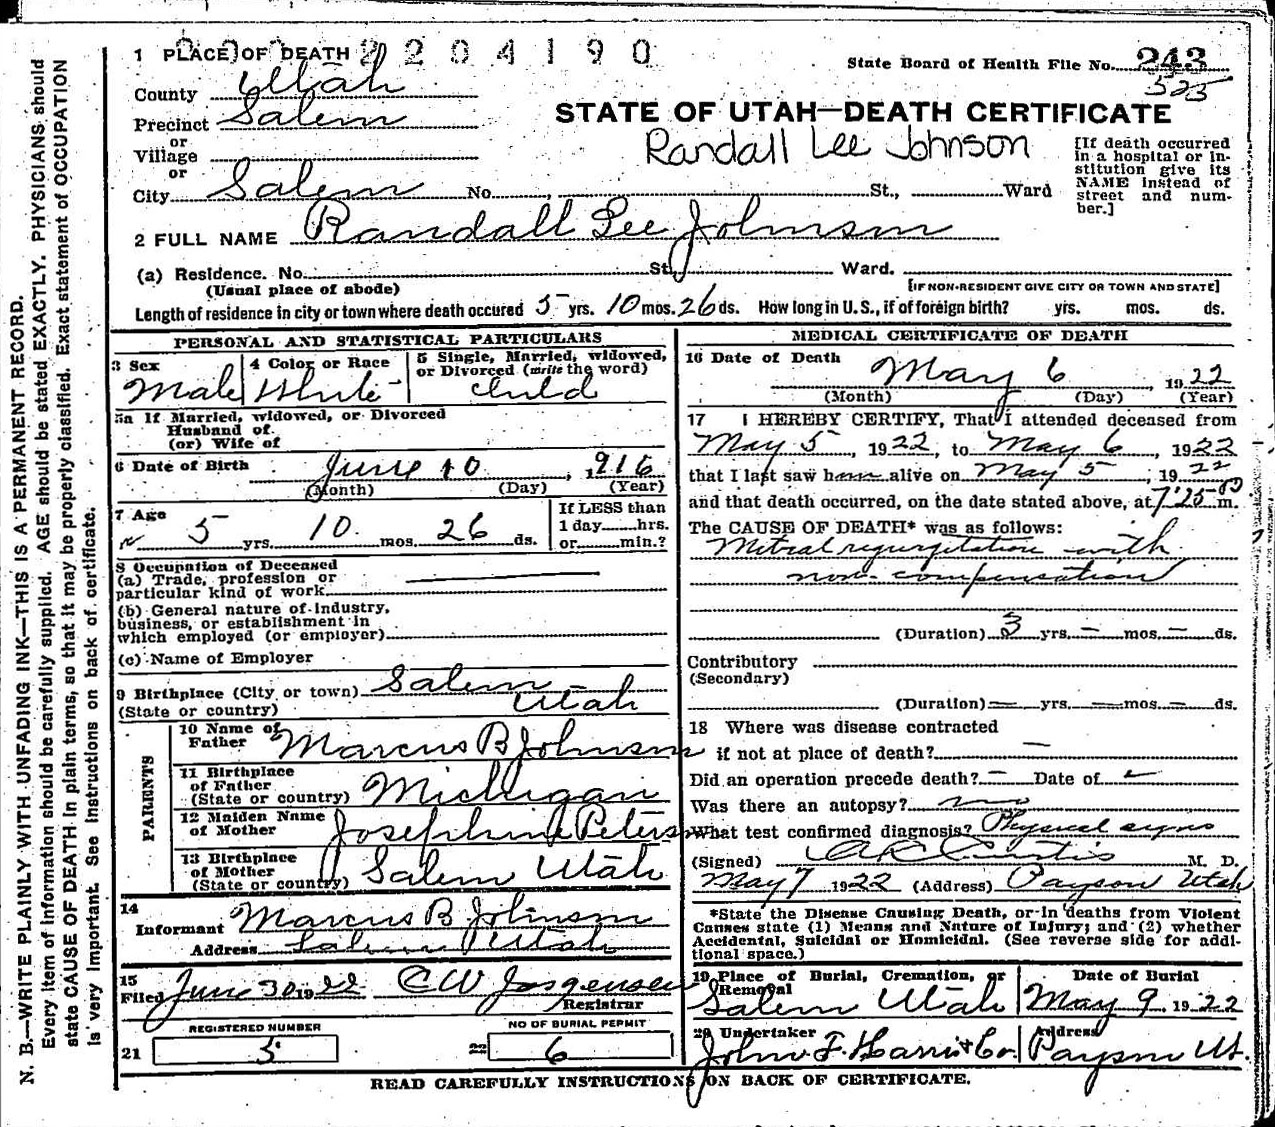 N. B.—WRITE PLAINLY WITH UNFADING INK—THIS IS A PERMANENT RECORD.
Every item of information should be carefully supplied. AGE should be stated EXACTLY. PHYSICIANS should
state CAUSE OF DEATH in plain terms, so that it may be properly classified. Exact statement of OCCUPATION
is very important. See instructions on back of certificate.
2204190
1 PLACE OF DEATH
State Board of Health File No. 243
525
County Utah
STATE OF UTAH—DEATH CERTIFICATE
Precinct Salem
or
Village
or
Randall Lee Johnson
[If death occurred in a hospital or institution give its NAME instead of street and number.]
City Salem No. , St., Ward
2 FULL NAME Randall Lee Johnson
(a) Residence. No. St. Ward.
(Usual place of abode) [IF NON-RESIDENT GIVE CITY OR TOWN AND STATE]
Length of residence in city or town where death occured 5 yrs. 10 mos. 26 ds. How long in U.S., if of foreign birth? yrs. mos. ds.
PERSONAL AND STATISTICAL PARTICULARS
3 Sex Male
4 Color or Race White
5 Single, Married, widowed, or Divorced (write the word) Child
5a If Married, widowed, or Divorced
Husband of.
(or) Wife of
6 Date of Birth June 10, 1916
(Month) (Day) (Year)
7 Age 5 yrs. 10 mos. 26 ds.
If LESS than
1 day hrs.
or min.?
8 Occupation of Deceased
(a) Trade, profession or
particular kind of work
(b) General nature of industry,
business, or establishment in
which employed (or employer)
(c) Name of Employer
9 Birthplace (City or town) Salem
(State or country) Utah
PARENTS
10 Name of Father Marcus B Johnson
11 Birthplace of Father (State or country) Michigan
12 Maiden Name of Mother Josephine Peterson
13 Birthplace of Mother (State or country) Salem Utah
14
Informant Marcus B Johnson
Address Salem Utah
15
Filed June 30 1922 C W Jorgensen
Registrar
REGISTERED NUMBER
21 5
NO OF BURIAL PERMIT
22 6
MEDICAL CERTIFICATE OF DEATH
16 Date of Death May 6, 1922
(Month) (Day) (Year)
17 I HEREBY CERTIFY, That I attended deceased from
May 5, 1922, to May 6, 1922
that I last saw him alive on May 5, 1922
and that death occurred, on the date stated above, at 7:25 m.
The CAUSE OF DEATH* was as follows:
Mitral regurgitation with
non-compensation
(Duration) 3 yrs. – mos. – ds.
Contributory
(Secondary)
(Duration) — yrs. — mos. — ds.
18 Where was disease contracted
if not at place of death? —
Did an operation precede death? – Date of
Was there an autopsy? no
What test confirmed diagnosis? Physical signs
(Signed) Curtis M. D.
May 7 1922 (Address) Payson Utah
*State the Disease Causing Death, or in deaths from Violent
Causes state (1) Means and Nature of Injury; and (2) whether
Accidental, Suicidal or Homicidal. (See reverse side for addi-
tional space.)
19 Place of Burial, Cremation, or Removal
Salem Utah
Date of Burial
May 9 1922
20 Undertaker
John F. Harris & Co.
Address
Payson Ut.
READ CAREFULLY INSTRUCTIONS ON BACK OF CERTIFICATE.